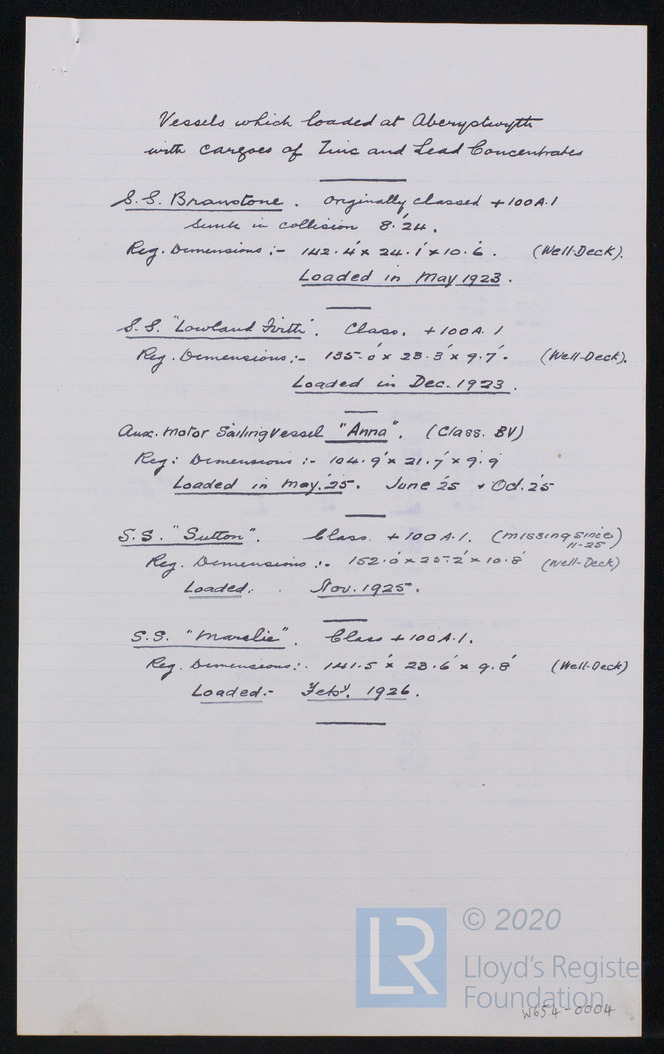 Vessels which loaded at Aberystwyth
with cargoes of Zinc and Lead Concentrates
S.S. Branstone. Originally classed +100A.1
Sunk in collision 8.'24.
Reg. Dimensions :- 142.4' x 24.1' x 10.6'. (Well-Deck).
Loaded in May 1923.
S.S. "Lowland Firth". Class. +100A.1
Reg. Dimensions:- 135.0' x 23.3' x 9.7'. (Well-Deck).
Loaded in Dec. 1923.
Aux. Motor Sailing Vessel "Anna". (Class. BV)
Reg: Dimensions :- 104.9' x 21.7' x 9.9
Loaded in May.'25. June '25 + Oct.'25
S.S. "Sutton". Class. +100A.1. (missing since)
11-25
Reg. Dimensions :- 152.0' x 25.2' x 10.8' (Well-Deck)
Loaded: Nov. 1925.
S.S. Class +100A.1.
Reg. Dimensions:. 141.5' x 23.6' x 9.8' (Well-Deck)
Loaded:- Feby. 1926.
LR © 2020
Lloyd's Registe
Foundation
W654-0004